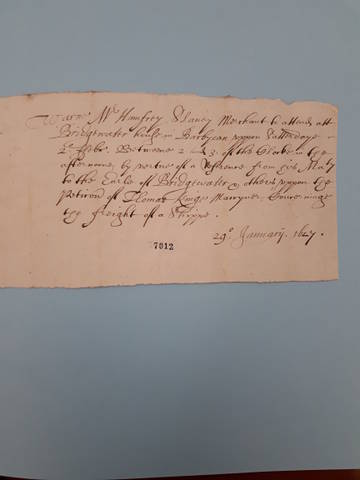 Warne Mr Humfrey Slaney Merchant to attend att
Bridgewater house in Barbycan uppon Satterdaye
2o Febr. Betweene 2 & 3. of the Clocke in the
afternoone, by vertue of a Reference from his Maty
to the Earle of Bridgewater & others uppon the
Petition of Thomas Kinges Marryner, Concerninge
the freight of a Shippe.
29o January. 1627.
7012